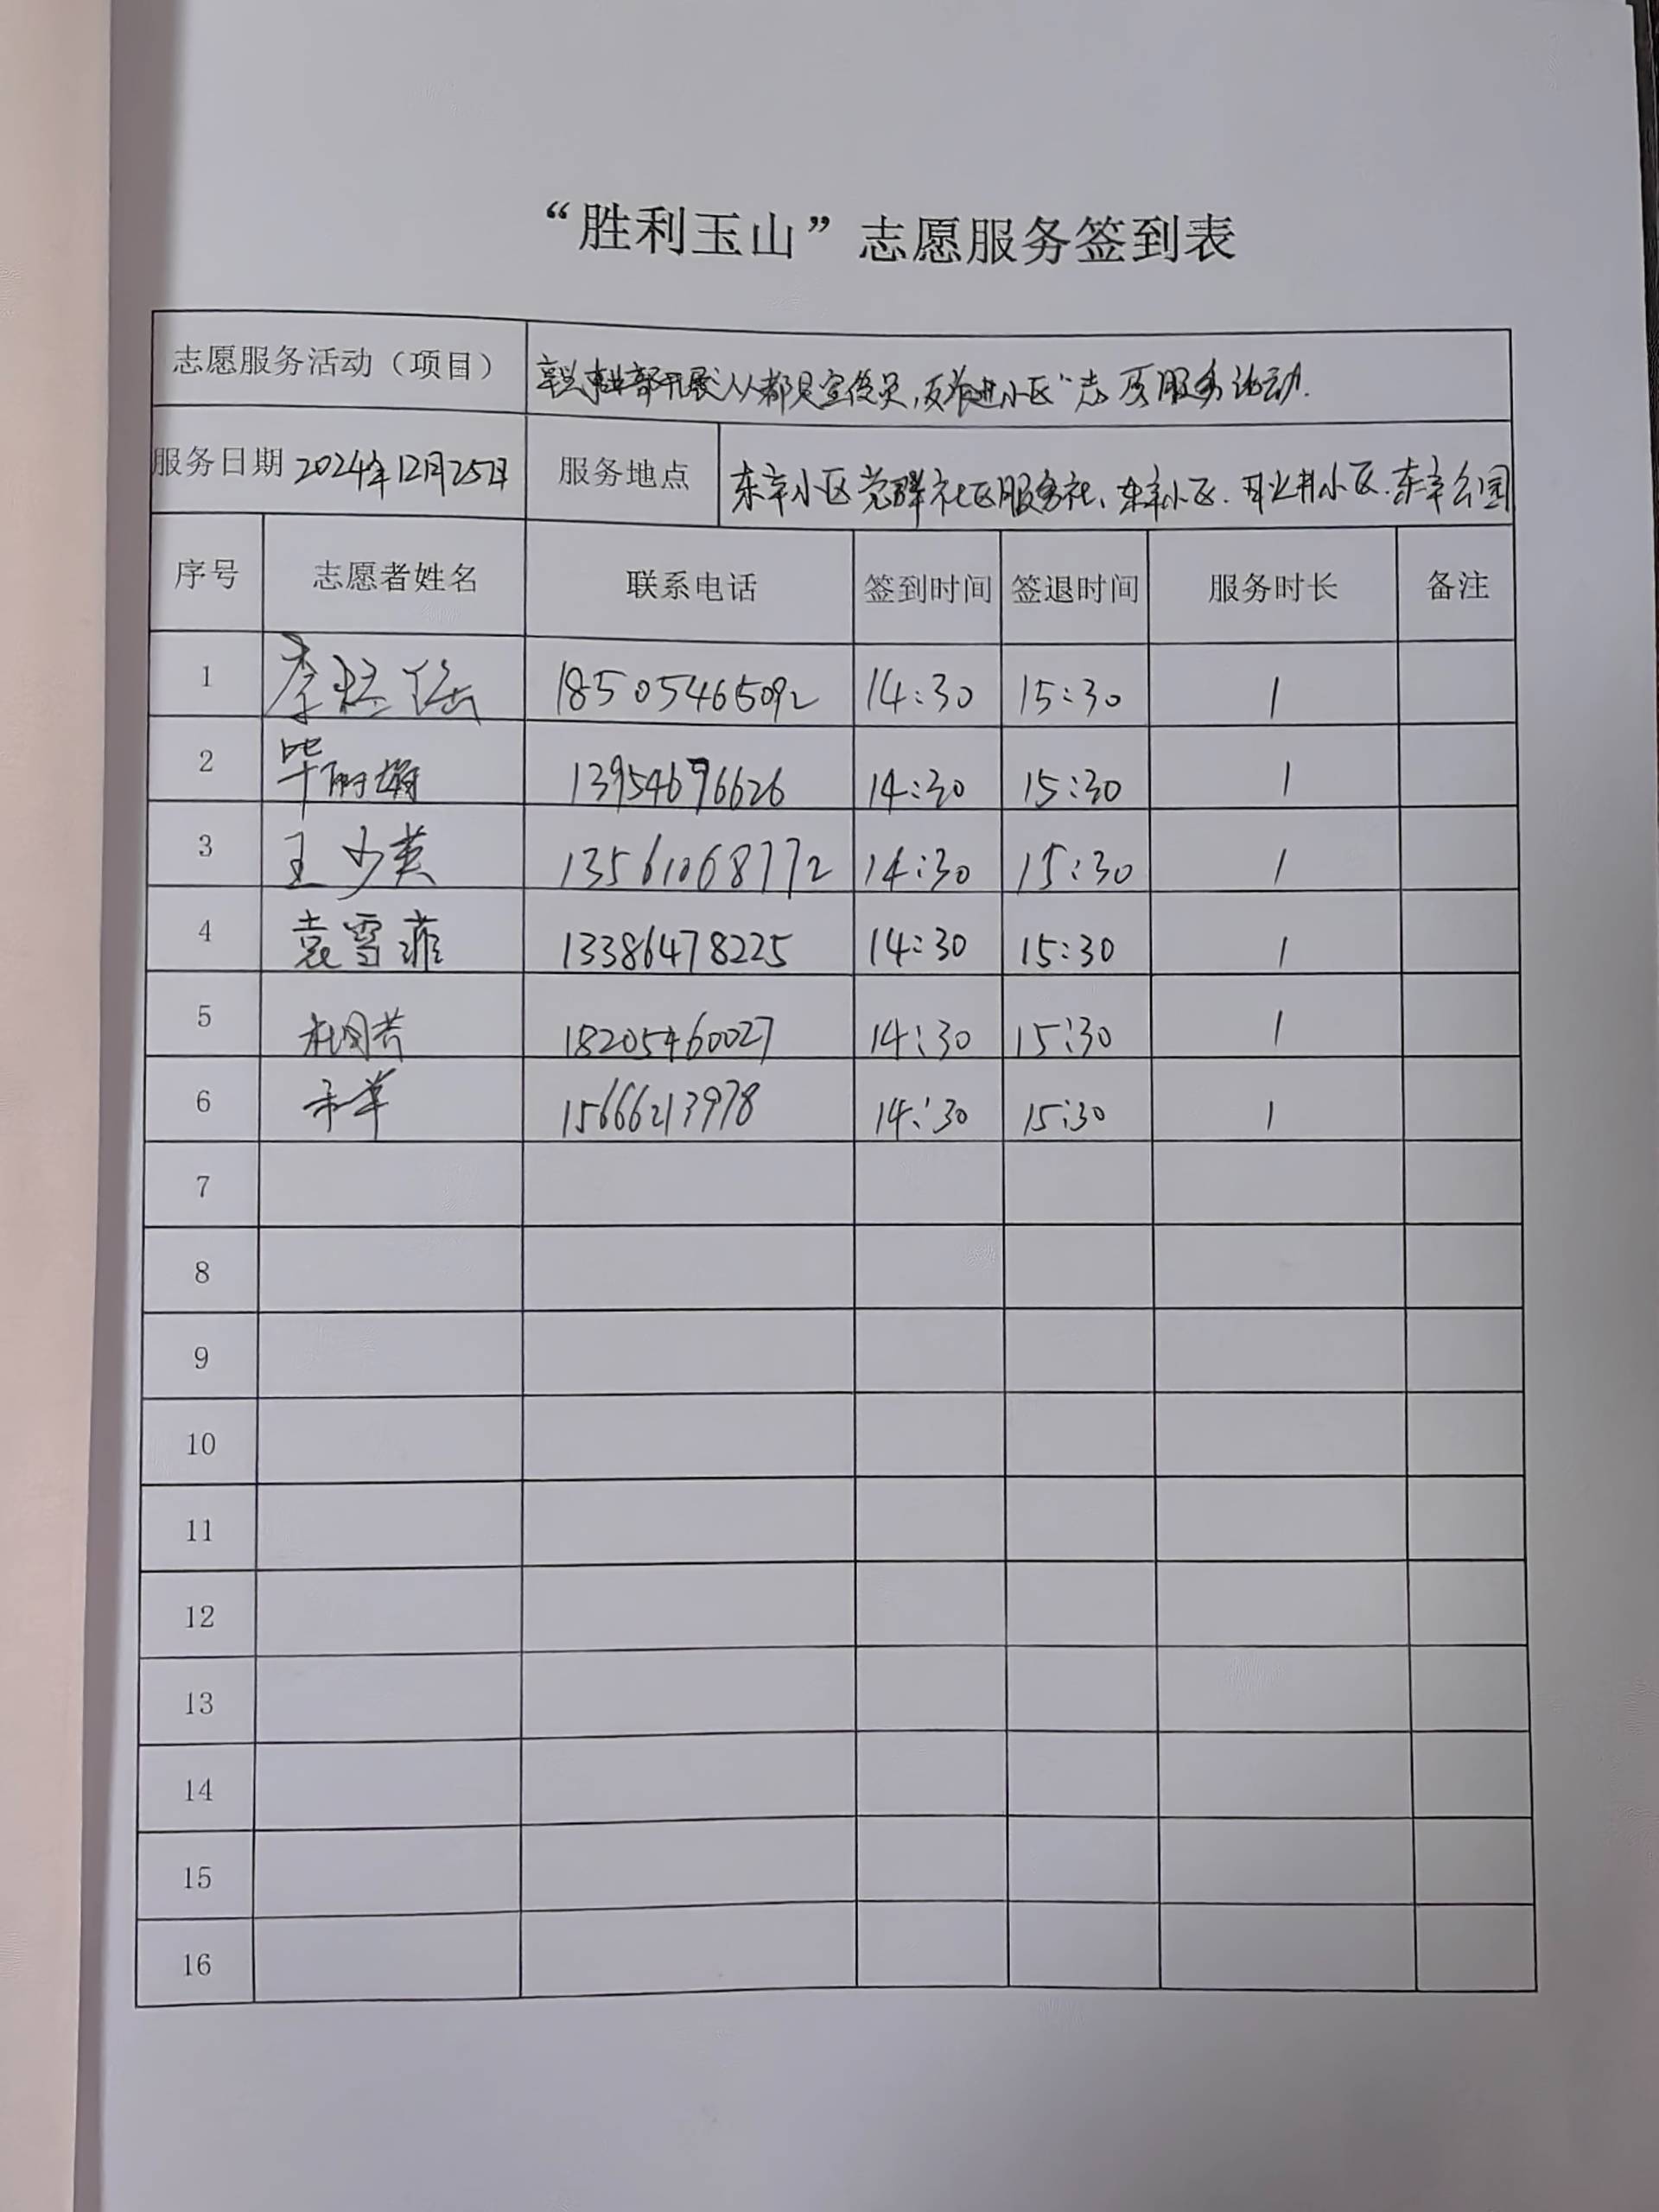 “胜利玉山”志愿服务签到表
志愿服务活动（项目） 事业部开展“人人都是宣传员,反诈进小区”志愿服务活动.
服务日期 2024年12月25日 服务地点 东辛小区党群社区服务社、东辛小区.丑业井小区.东辛公园
序号 志愿者姓名 联系电话 签到时间 签退时间 服务时长 备注
1 李 18505465092 14:30 15:30 1
2 毕丽娜 13954696626 14:30 15:30 1
3 王少英 13561068772 14:30 15:30 1
4 袁雪菲 13386478225 14:30 15:30 1
5 18205460027 14:30 15:30 1
6 15666213978 14:30 15:30 1
7
8
9
10
11
12
13
14
15
16